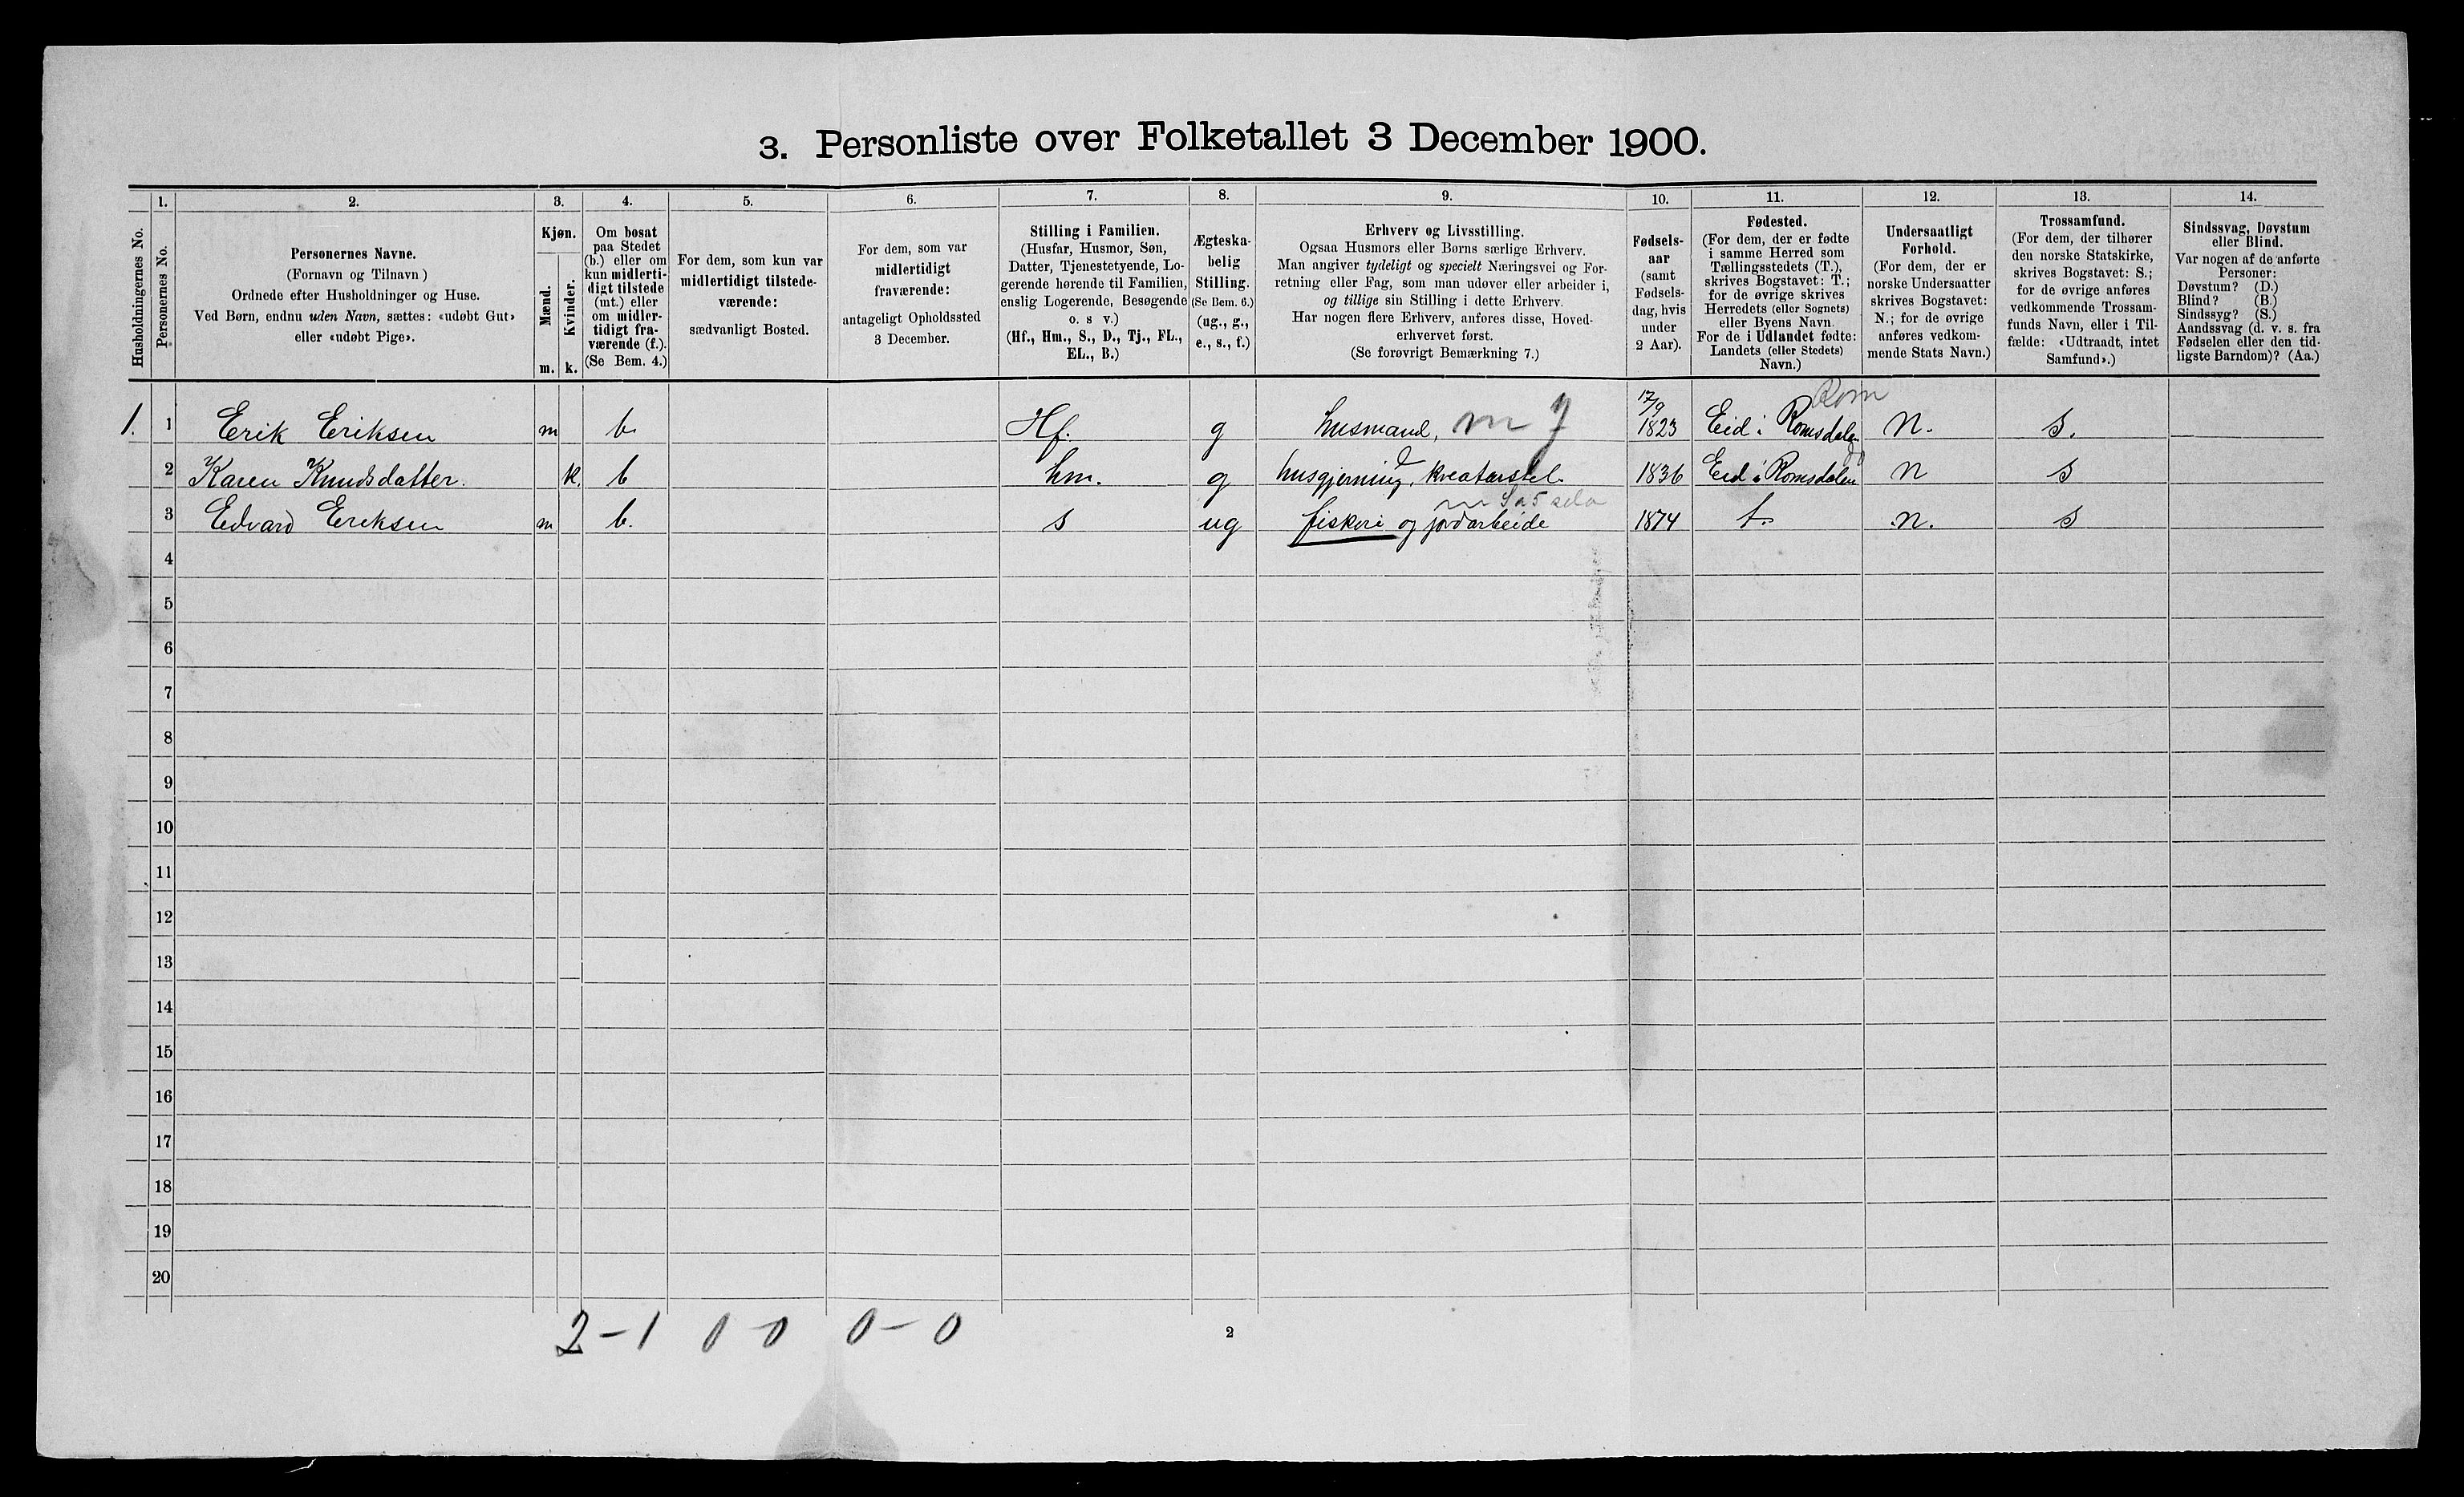 3. Personliste over Folketallet 3 December 1900.
Husholdningernes No.
1.
Personernes No.
2.
Personernes Navne.
(Fornavn og Tilnavn)
Ordnede efter Husholdninger og Huse.
Ved Børn, endnu uden Navn, sættes: «udøbt Gut»
eller «udøbt Pige».
3.
Kjøn.
Mænd.
Kvinder.
m. k.
4.
Om bosat
paa Stedet
(b.) eller om
kun midlerti-
digt tilstede
(mt.) eller
om midler-
tidigt fra-
værende (f.).
(Se Bem. 4.)
5.
For dem, som kun var
midlertidigt tilstede-
værende:
sædvanligt Bosted.
6.
For dem, som var
midlertidigt
fraværende:
antageligt Opholdssted
3 December.
7.
Stilling i Familien.
(Husfar, Husmor, Søn,
Datter, Tjenestetyende, Lo-
gerende hørende til Familien,
enslig Logerende, Besøgende
o. s v.)
(Hf., Hm., S., D., Tj., FL.,
EL., B.)
8.
Ægteska-
belig
Stilling.
(Se Bem. 6.)
(ug., g.,
e., s., f.)
9.
Erhverv og Livsstilling.
Ogsaa Husmors eller Børns særlige Erhverv.
Man angiver tydeligt og specielt Næringsvei og For-
retning eller Fag, som man udøver eller arbeider i,
og tillige sin Stilling i dette Erhverv.
Har nogen flere Erhverv, anføres disse, Hoved-
erhvervet først.
(Se forøvrigt Bemærkning 7.)
10.
Fødsels-
aar
(samt
Fødsels-
dag, hvis
under
2 Aar).
11.
Fødested.
(For dem, der er fødte
i samme Herred som
Tællingsstedets (T.),
skrives Bogstavet: T.;
for de øvrige skrives
Herredets (eller Sognets)
eller Byens Navn.
For de i Udlandet fødte:
Landets (eller Stedets)
Navn.)
12.
Undersaatligt
Forhold.
(For dem, der er
norske Undersaatter
skrives Bogstavet:
N.; for de øvrige
anføres vedkom-
mende Stats Navn.)
13.
Trossamfund.
(For dem, der tilhører
den norske Statskirke,
skrives Bogstavet: S.;
for de øvrige anføres
vedkommende Trossam-
funds Navn, eller i Til-
fælde: «Udtraadt, intet
Samfund».)
14.
Sindssvag, Døvstum
eller Blind.
Var nogen af de anførte
Personer:
Døvstum? (D.)
Blind? (B.)
Sindssyg? (S.)
Aandssvag (d. v. s. fra
Fødselen eller den tid-
ligste Barndom)? (Aa.)
17/9 Rom
1. 1 Erik Eriksen m b. Hf. g husmand, m J 1823 Eid i Romsdalen N. S.
2 Karen Knudsdatter. k. b hm. g husgjerning, kreaturstel. 1836 Eid i Romsdalen N S
3 Edvard Eriksen m b. s ug fiskeri og jordarbeide 1874 t. N. S
4
5
6
7
8
9
10
11
12
13
14
15
16
17
18
19
20
2-1 0-0 0-0
2